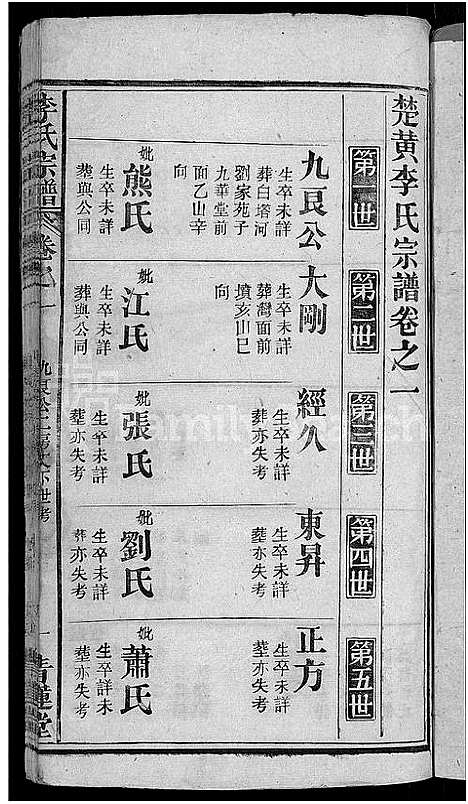 楚黃李氏宗譜卷之一
第一世
第二世
第三世
第四世
第五世
九良公
生卒未詳
葬白塔河
劉家苑子
九華堂前
面乙山辛
向
妣熊氏
生卒未詳
葬與公同
大剛
生卒未詳
葬灣面前
墳亥山巳
向
妣江氏
生卒未詳
葬與公同
經久
生卒未詳
葬亦失考
妣張氏
生卒未詳
葬亦失考
東昇
生卒未詳
葬亦失考
妣劉氏
生卒未詳
葬亦失考
正方
生卒未詳
葬亦失考
妣蕭氏
生卒詳未
葬亦失考
李氏宗譜
卷之一
九良公
下世考
一
青蓮堂